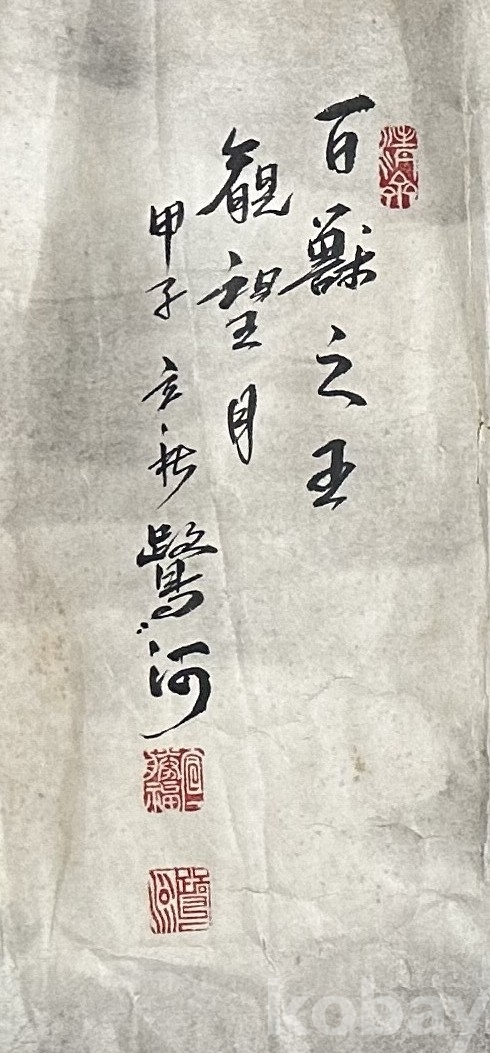 百獸之王
觀望月
甲子 玄秋 鷺河
kobay